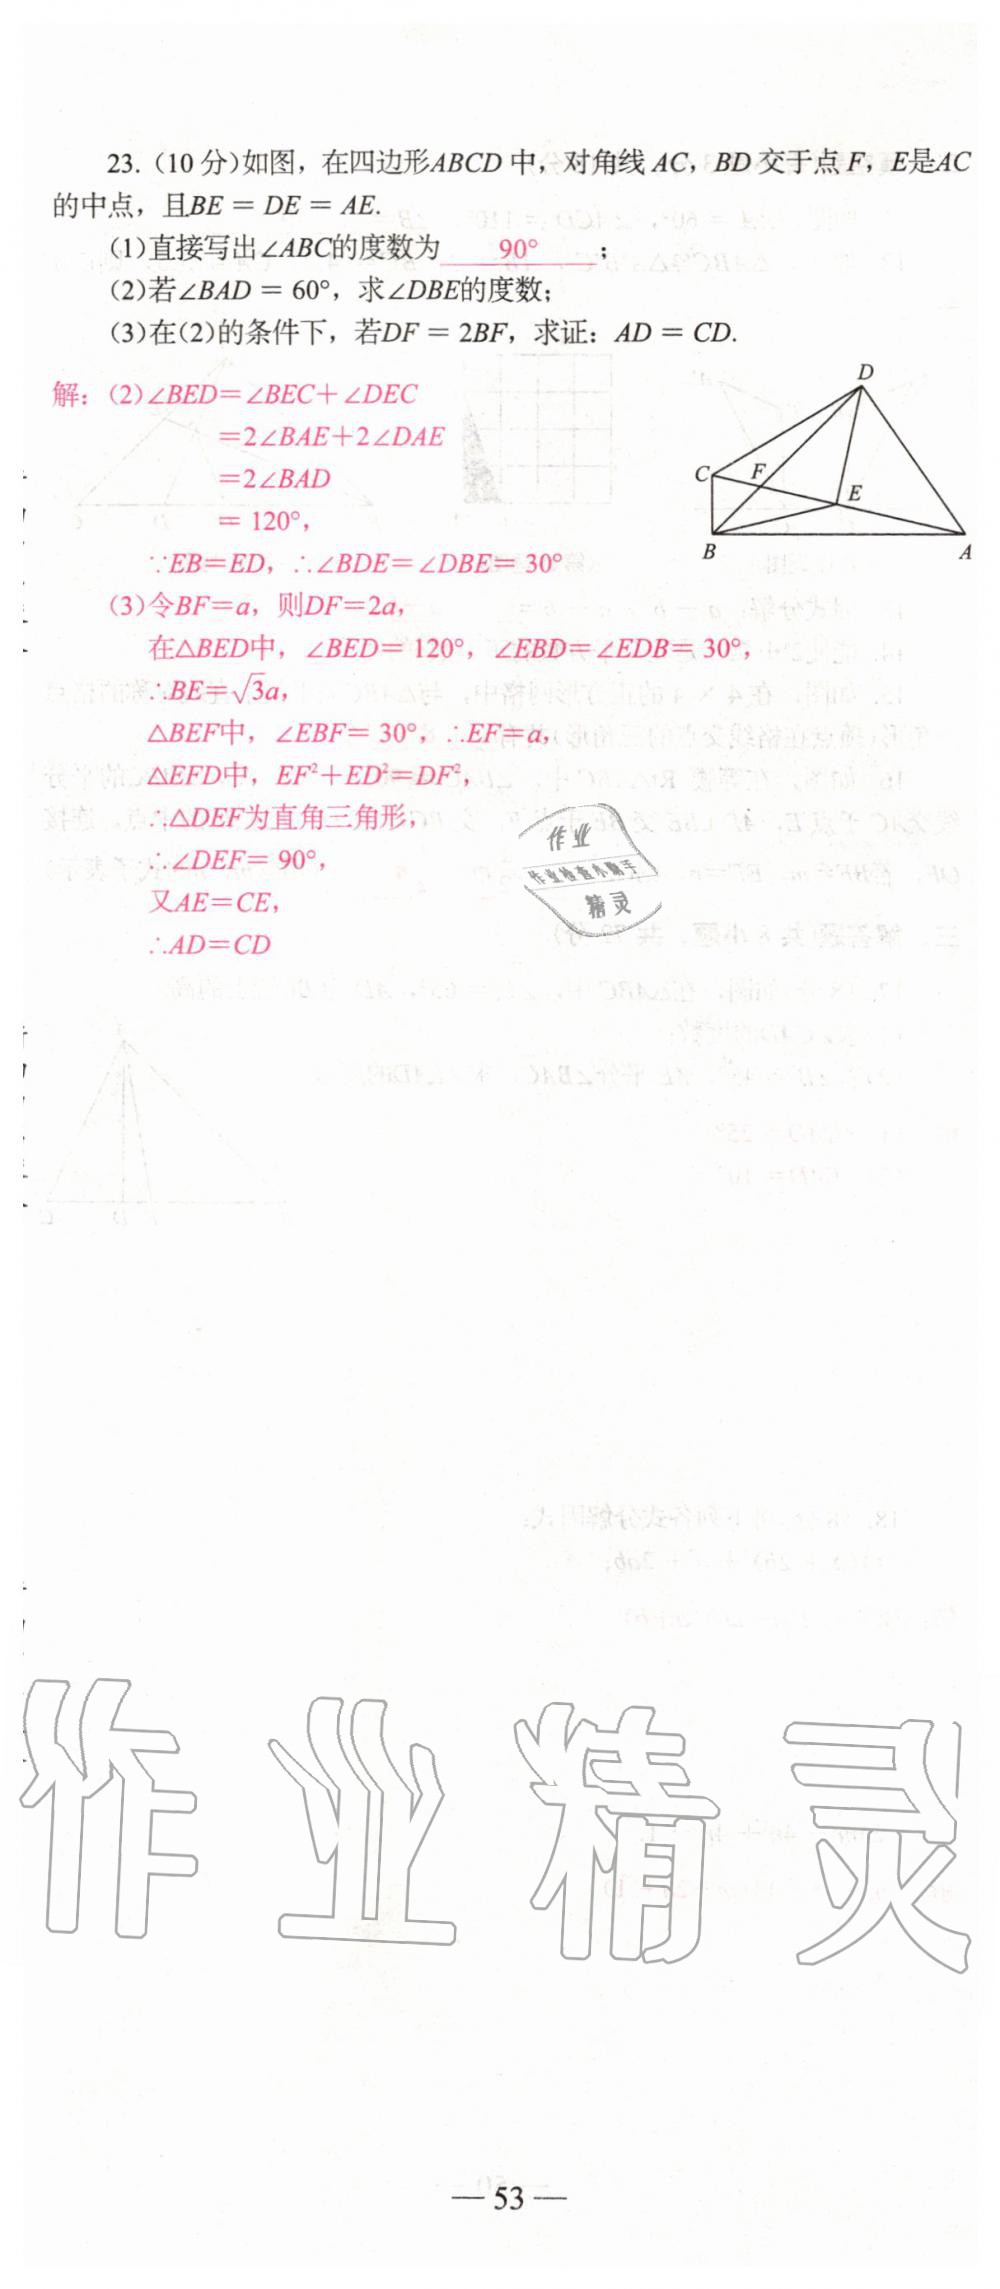 23. (10 分)如图，在四边形ABCD 中，对角线 AC，BD 交于点 F，E是AC
的中点，且BE = DE = AE.
(1)直接写出∠ABC的度数为 90° ；
(2)若∠BAD = 60°，求∠DBE的度数；
(3)在(2)的条件下，若DF = 2BF，求证：AD = CD.
解：(2)∠BED=∠BEC+∠DEC
=2∠BAE+2∠DAE
=2∠BAD
= 120°，
∵EB=ED，∴∠BDE=∠DBE= 30°
(3)令BF=a，则DF=2a，
在△BED中，∠BED= 120°，∠EBD=∠EDB= 30°，
∴BE=√3a，
△BEF中，∠EBF= 30°，∴EF=a，
△EFD中，EF²+ED²=DF²，
∴△DEF为直角三角形，
∴∠DEF= 90°，
又AE=CE，
∴AD=CD
D
C
F
E
B
A
作业
作业检查小助手
精灵
作业精灵
— 53 —